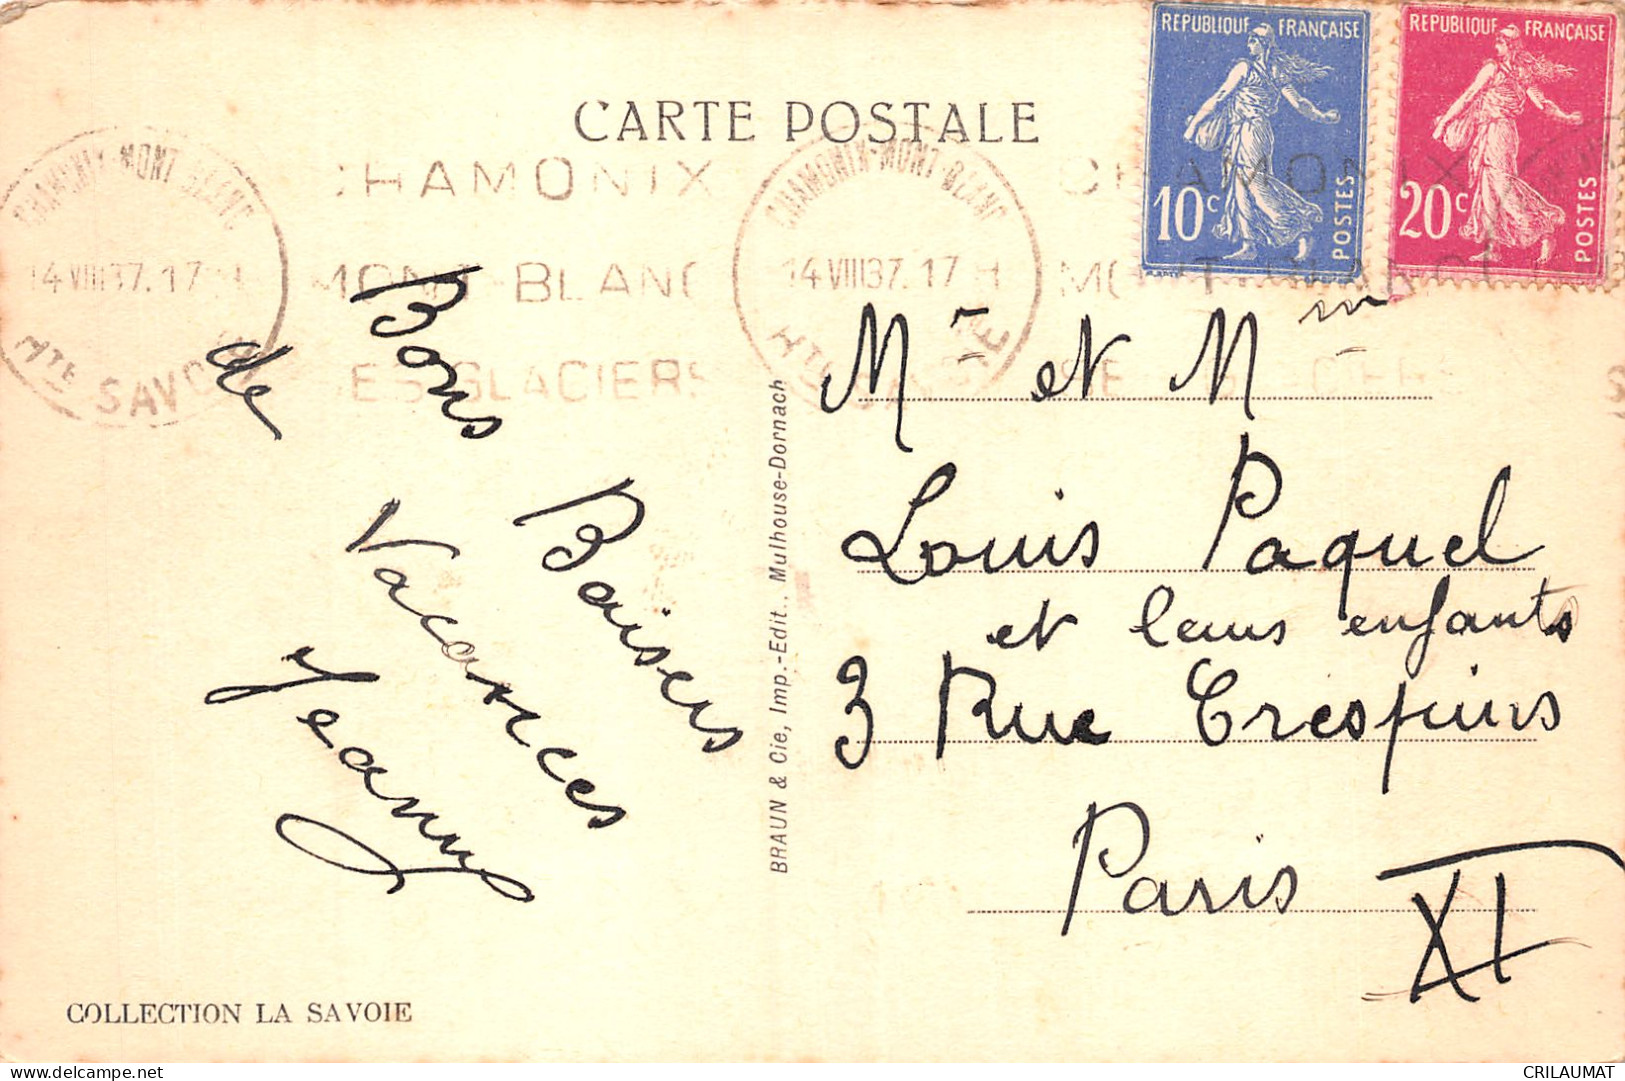 CARTE POSTALE
REPUBLIQUE FRANÇAISE
10c
POSTES
REPUBLIQUE FRANÇAISE
20c
POSTES
CHAMONIX-MONT-BLANC
14 VIII 37. 17 H
HTE SAVOIE
CHAMONIX
MONT-BLANC
SES GLACIERS
CHAMONIX-MONT-BLANC
14 VIII 37. 17 H
HTE SAVOIE
CHAMONIX
MONT-BLANC
SES GLACIERS
Bons Baisers
de Vacances
Jeany
BRAUN & Cie, Imp.-Edit., Mulhouse-Dornach
Mr et Mme
Louis Paquel
et leurs enfants
3 Rue Crespin
Paris XI
COLLECTION LA SAVOIE
CRILAUMAT